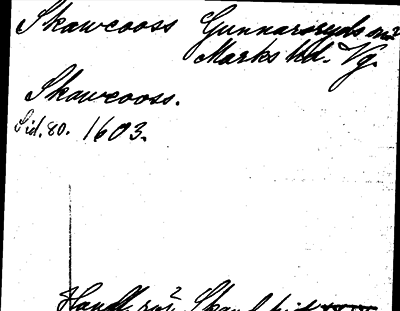 Skawcooss Gunnarsryds sn
Marks hd. Vg.
Skawcooss.
Sid. 80. 1603.
Handl. rör. Skand.